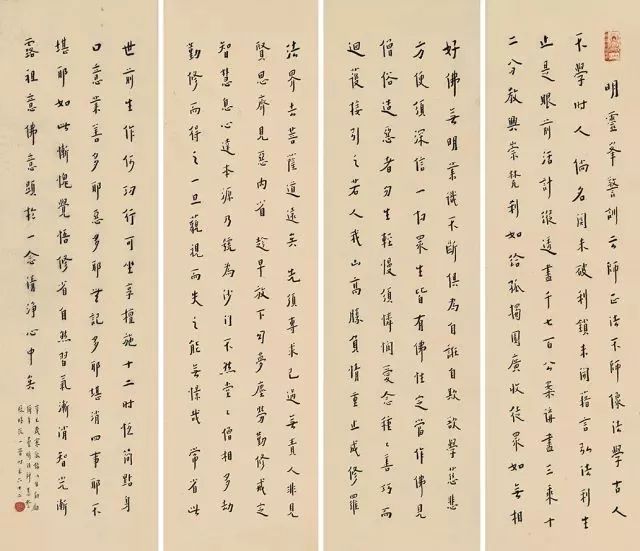 明靈峯警訓云師正法不師像法學古人
不學时人倘名関未破利鎖未開藉言弘法利生
止是眼前活計縱透盡千七百公案講盡三乘十
二分教興崇梵刹如給孤獨園廣收徒眾如無相
好佛無明業識不斷俱為自誑自欺欲學慈悲
方便須深信一切眾生皆有佛性定當作佛見
僧俗造惡者勿生輕慢須憐憫愛念種々善巧而
迴護接引之若人我山高勝負情重止成修羅
法界去菩薩道遠矣先須專求己過毋責人非見
賢思齊見惡內省趁早放下夢塵勞勤修戒定
智慧息心達本源乃號為沙门不然堂々僧相多劫
勤修而得之一旦藐視而失之能無懍哉常省此
世前生作何功行可坐享檀施十二时簡點身
口意業善多耶惡多耶無記多耶堪消四事耶不
堪耶如此慚愧覺悟修省自然習氣漸消智光漸
露祖意佛意顯於一念清淨心中矣